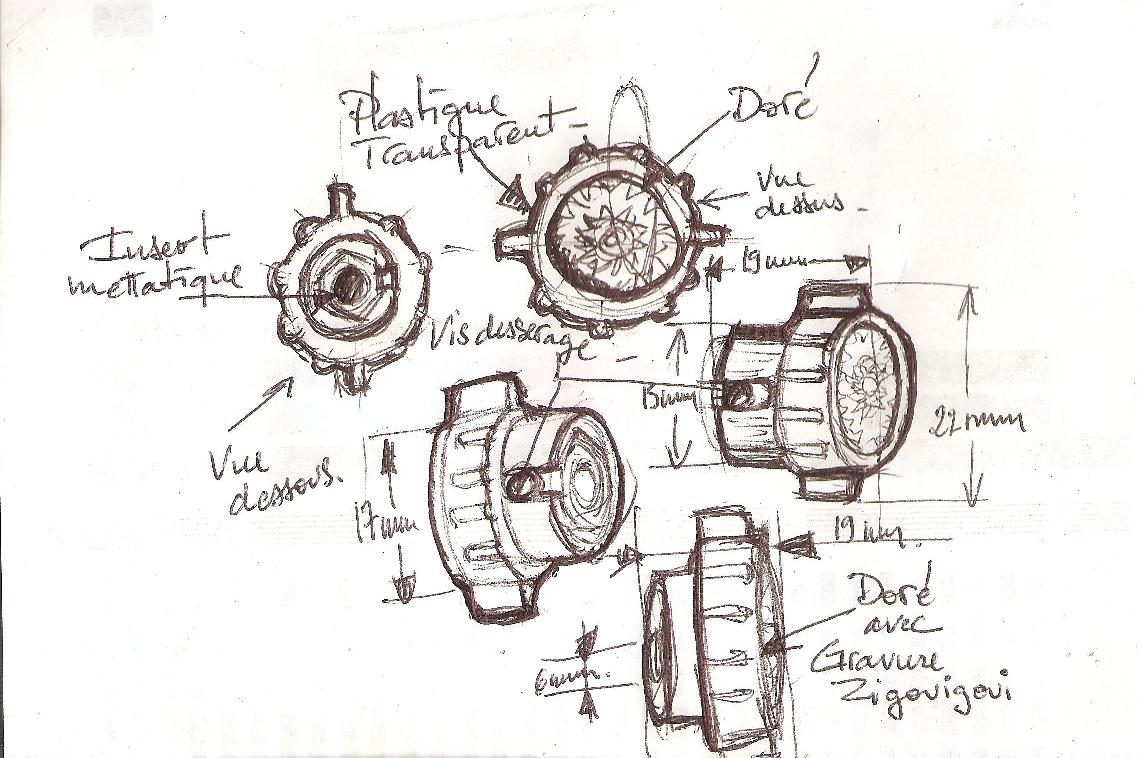 Plastique
Transparent -
Doré
Vue
dessus -
Insert
mettatique
19 mm
Vis desserage -
15 mm
22 mm
Vue
dessous.
17 mm
19 mm.
Doré
avec
Gravure
Zigovigovi
6 mm.